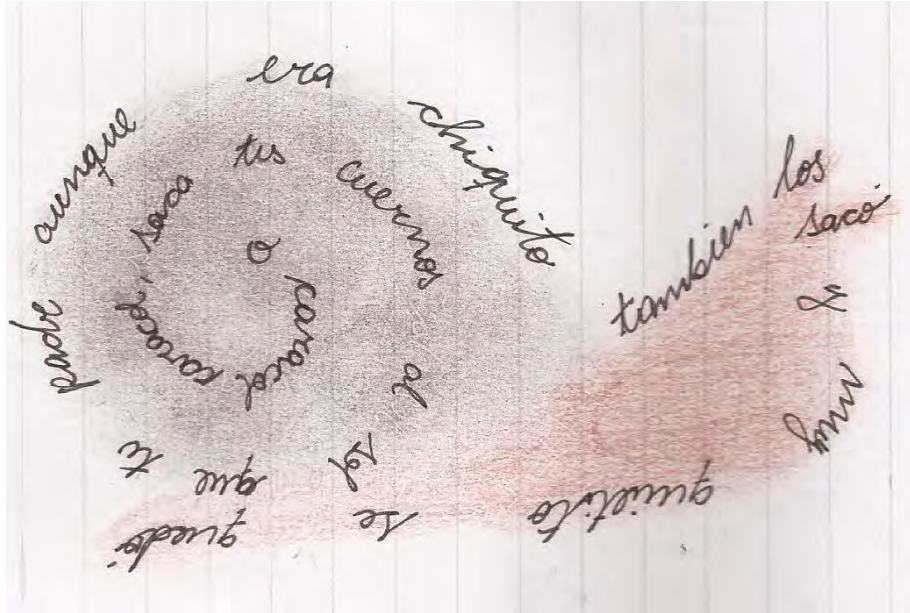 O caracol caracol caracol, saca tus cuernos al sol que tu padre aunque era chiquito tambien los sacó y muy quietito se quedó